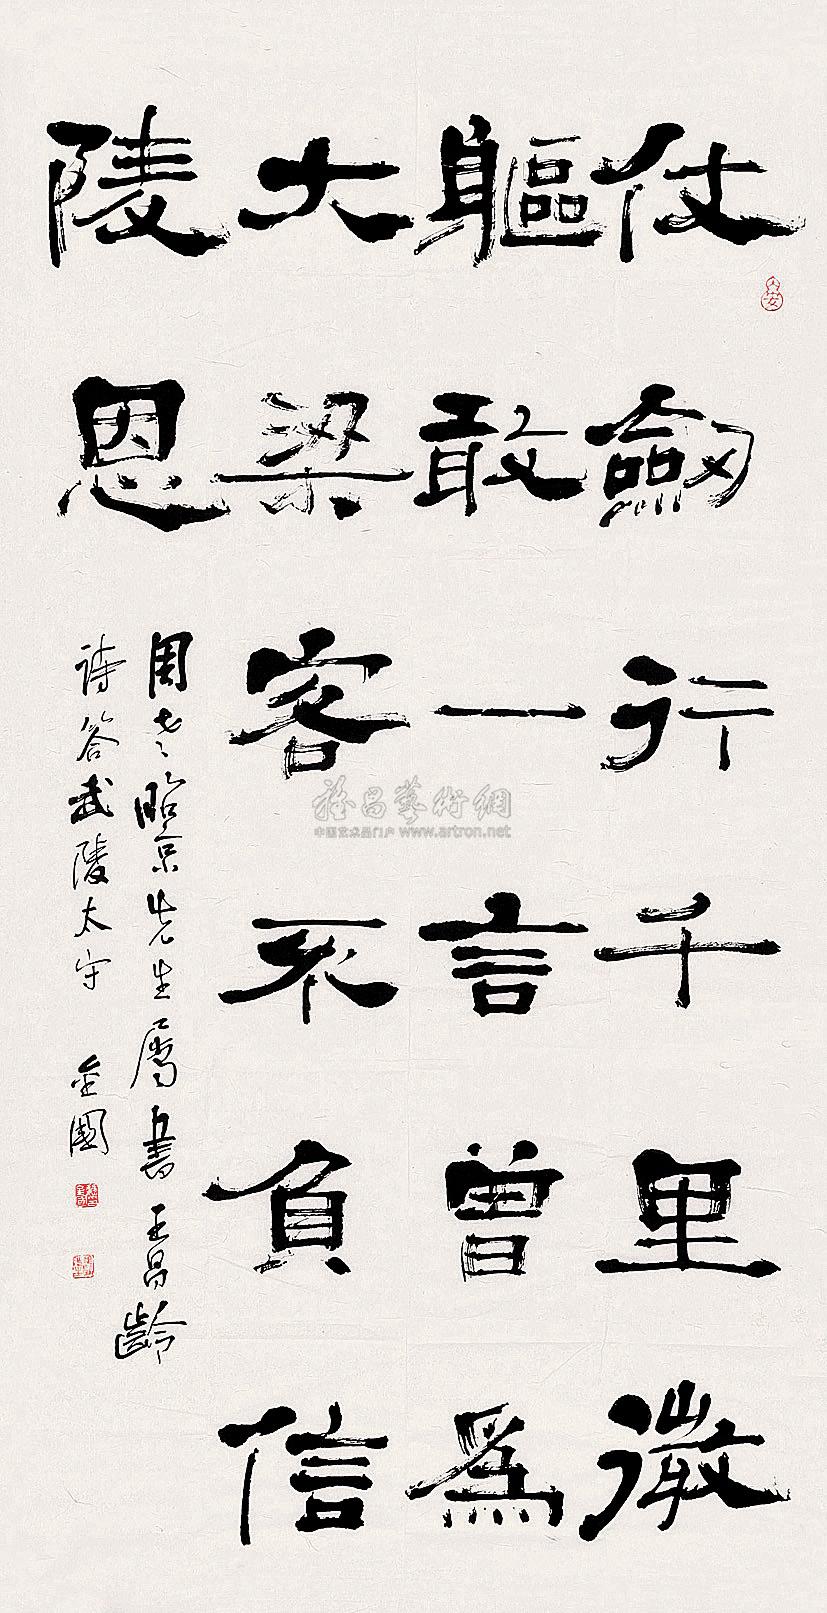 仗劎行千里微
軀敢一言曾爲
大梁客不負信
陵恩
周老昭京先生屬書王昌齡
詩答武陵太守 金國
雅昌藝術網
中国艺术品门户 www.artron.net